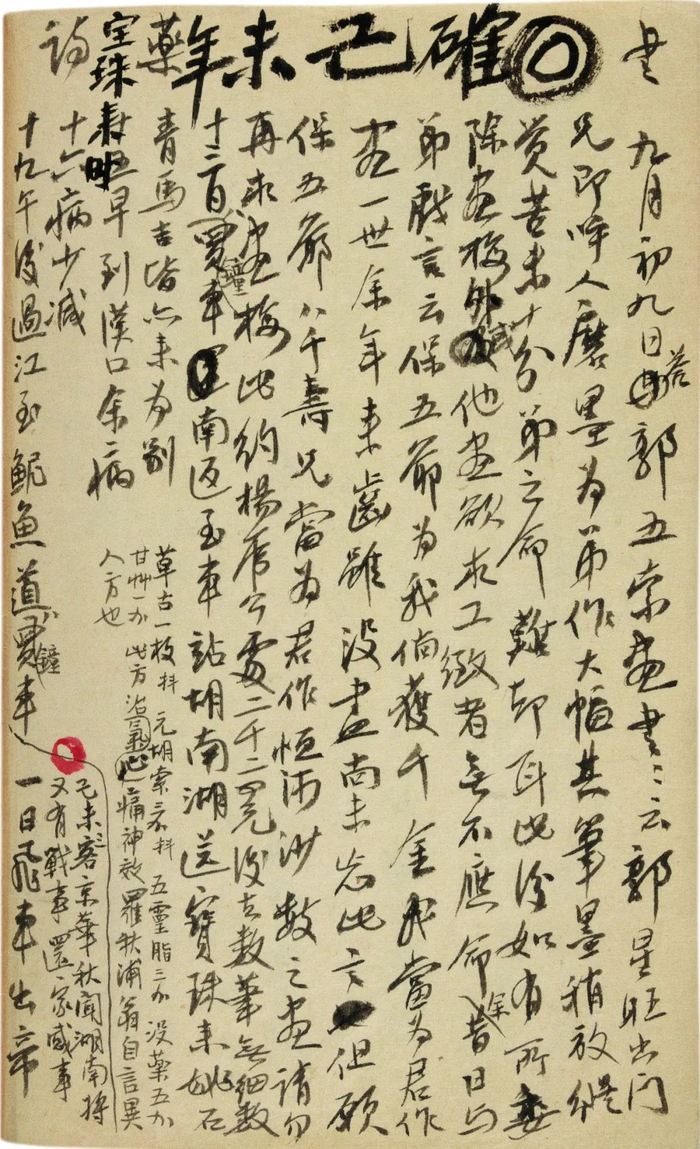 書
確 己未年
藥
寶珠
詩
九月初九日答郭五索畫書書云郭星旺出門
兄即呼人磨墨為弟作大幅其筆墨稍放縱
覺苦未十分弟之命難却耳此後如有所委
除畫梅外他畫欲求工緻者無不應命余昔日與
弟戲言云保五爺為我倘獲千金我當為君作
畫一世余年來齒雖沒盡尚未忘此言但願
保五爺八千壽兄當為君作恒河沙數之畫請勿
再求畫梅此約楊虎公處二千二後去數筆無細數
十二日買車南返至車站胡南湖送寶珠未姚石
青馬吉皆亦來為別
十五早到漢口余病
十六病少減
十九午後過江至鮎魚道買車
草古一枚 元胡索三分 五靈脂三分 沒藥五分
甘艸一分 此方治氣心痛神效羅秋浦翁自言異
人方也
己未三客京華秋聞湖南將
又有戰事還家感事
一日飛車出帝